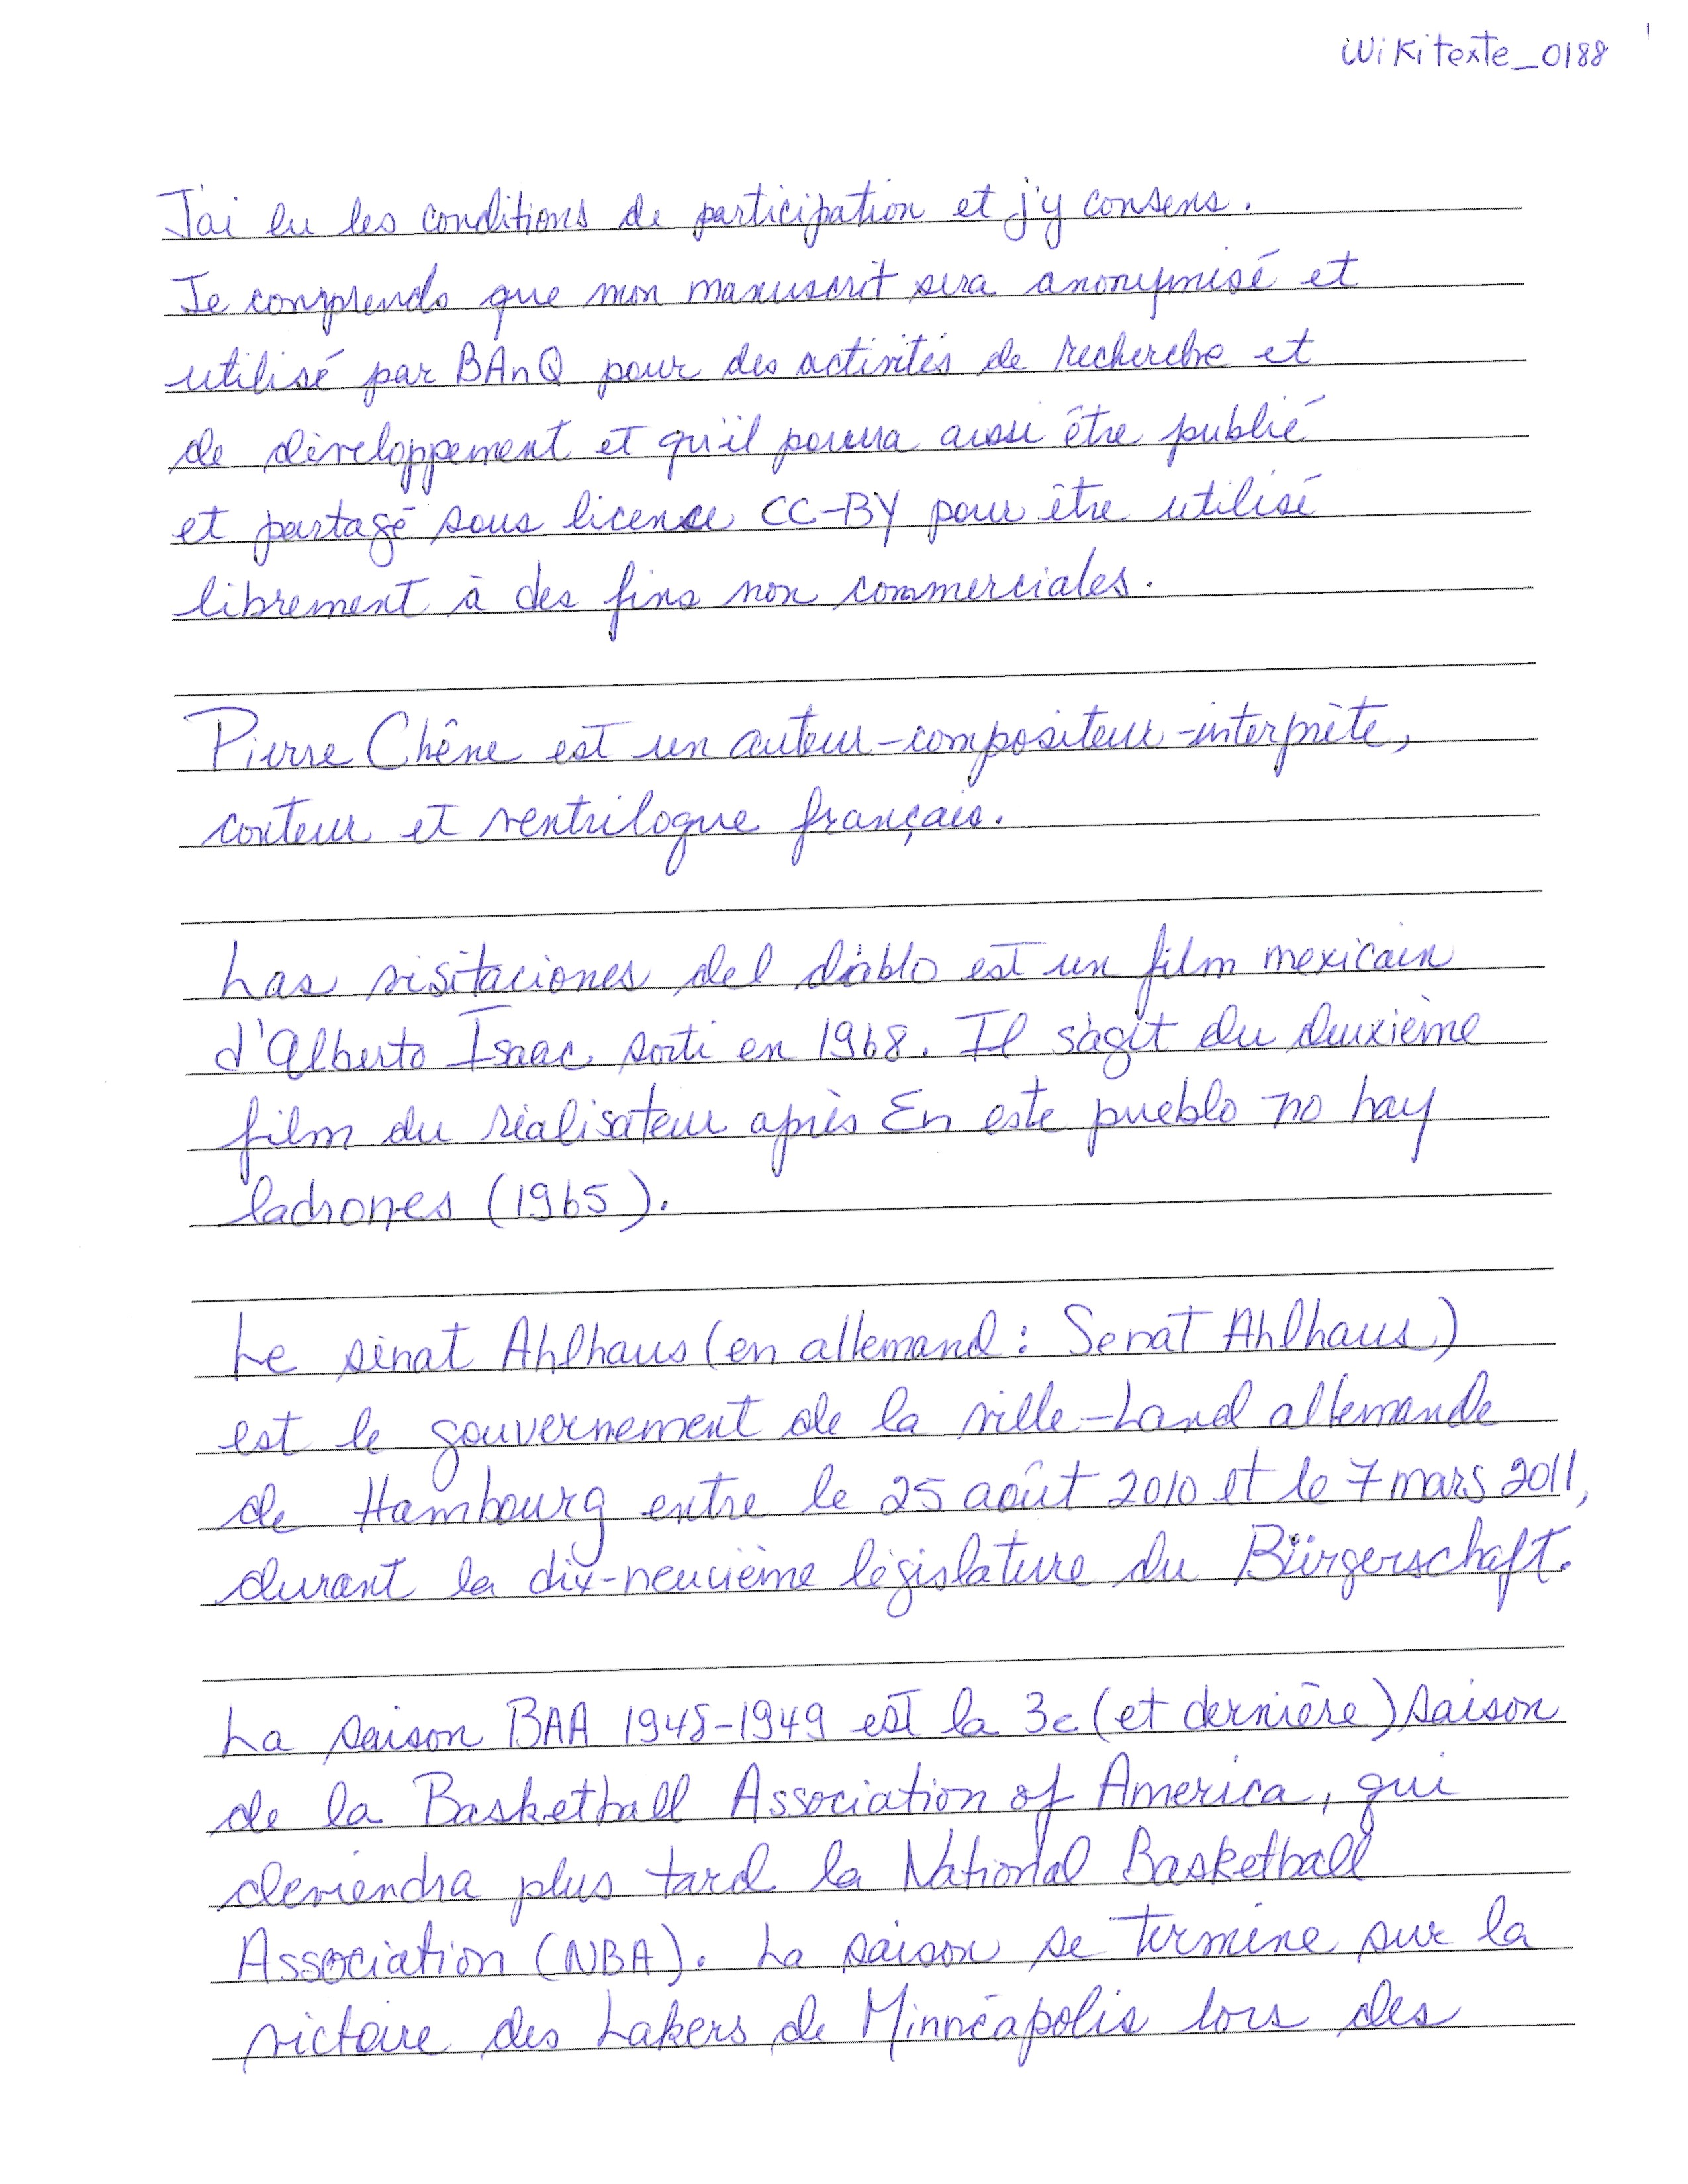 Wikitexte_0188
J'ai lu les conditions de participation et j'y consens.
Je comprends que mon manuscrit sera anonymisé et
utilisé par BAnQ pour des activités de recherche et
de développement et qu'il pourra aussi être publié
et partagé sous licence CC-BY pour être utilisé
librement à des fins non commerciales.
Pierre Chêne est un auteur-compositeur-interprète,
conteur et ventriloque français.
Las visitaciones del diablo est un film mexicain
d'Alberto Isaac sorti en 1968. Il s'agit du deuxième
film du réalisateur après En este pueblo no hay
ladrones (1965).
Le sénat Ahlhaus (en allemand : Senat Ahlhaus)
est le gouvernement de la ville-Land allemande
de Hambourg entre le 25 août 2010 et le 7 mars 2011,
durant la dix-neuvième législature du Bürgerschaft.
La saison BAA 1948-1949 est la 3e (et dernière) saison
de la Basketball Association of America, qui
deviendra plus tard la National Basketball
Association (NBA). La saison se termine sur la
victoire des Lakers de Minnéapolis lors des